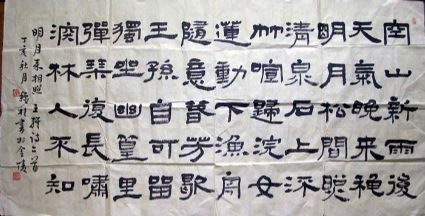 空山新雨後
天氣晚來穐
明月松間照
清泉石上流
竹喧歸浣女
蓮動下漁舟
隨意春芳歇
王孫自可留
獨坐幽篁里
彈琴復長嘯
深林人不知
明月來相照 王維詩二首
丁亥秋月 書於金陵